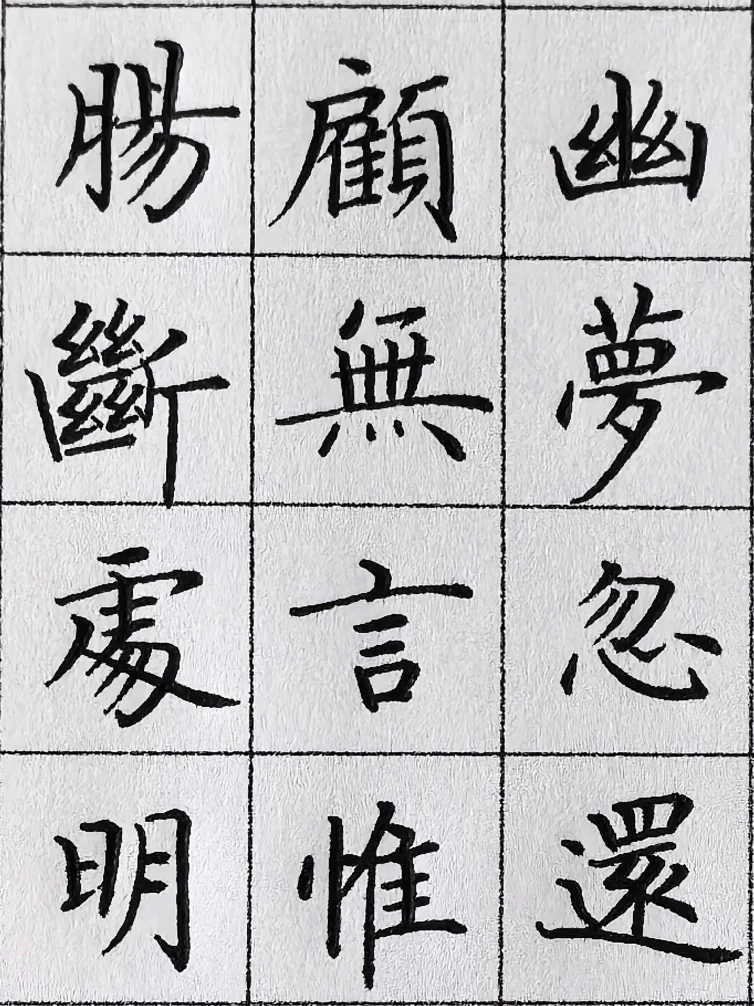 幽夢忽還
顧無言惟
腸斷處明